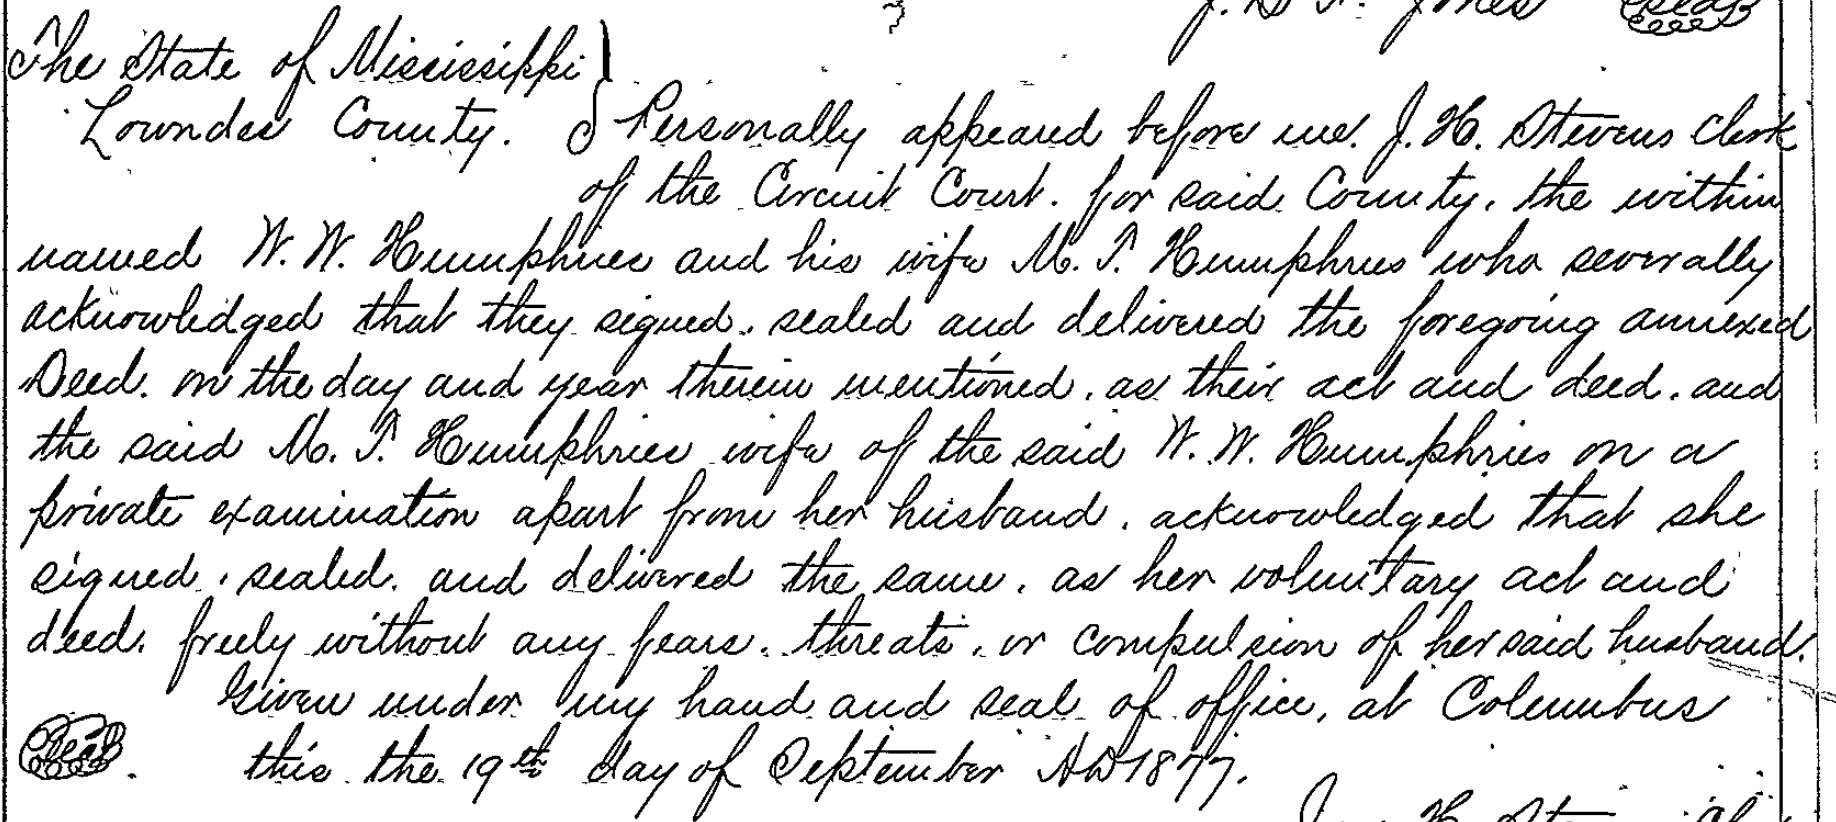 J. D. T. Jones Seal
The State of Mississippi
Lowndes County. Personally appeared before me. J. H. Stevens Clerk
of the Circuit Court. for said County. the within
named W. W. Humphries and his wife M. T. Humphries who severally
acknowledged that they signed. sealed and delivered the foregoing annexed
Deed. on the day and year therein mentioned. as their act and deed. and
the said M. T. Humphries wife of the said W. W. Humphries on a
private examination apart from her husband. acknowledged that she
signed. sealed. and delivered the same. as her voluntary act and
deed. freely without any fears. threats. or compulsion of her said husband.
Given under my hand and seal of office, at Columbus
Seal. this the 19th day of September AD 1877.